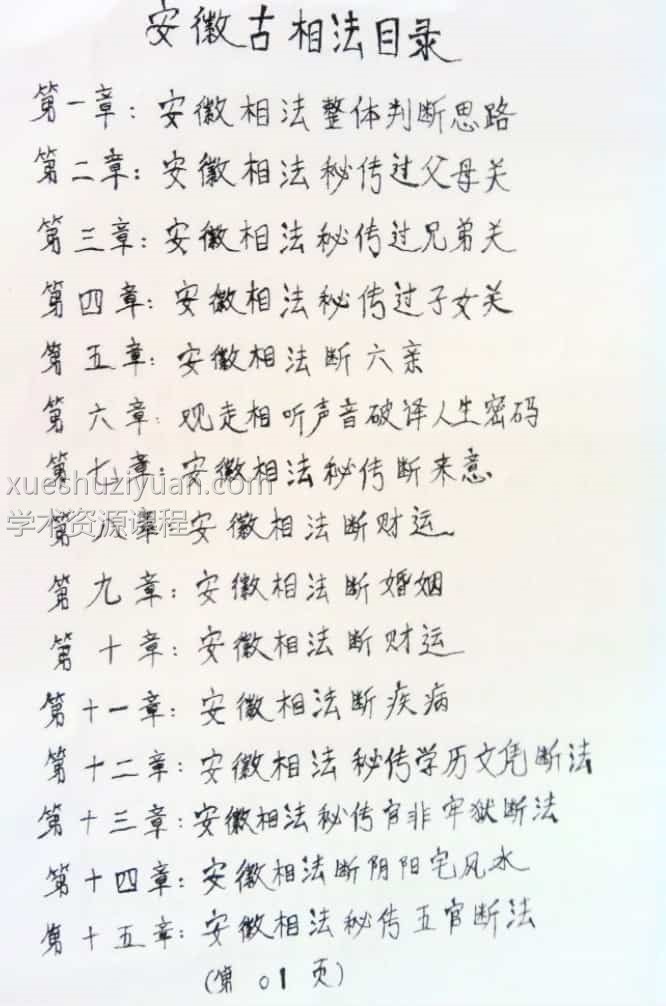 安徽古相法目录
第一章：安徽相法整体判断思路
第二章：安徽相法秘传过父母关
第三章：安徽相法秘传过兄弟关
第四章：安徽相法秘传过子女关
第五章：安徽相法断六亲
第六章：观走相听声音破译人生密码
第七章：安徽相法秘传断来意
xueshuziyuan.com
学术资源课程
第八章：安徽相法断财运
第九章：安徽相法断婚姻
第十章：安徽相法断财运
第十一章：安徽相法断疾病
第十二章：安徽相法秘传学历文凭断法
第十三章：安徽相法秘传官非牢狱断法
第十四章：安徽相法断阴阳宅风水
第十五章：安徽相法秘传五官断法
（第01页）